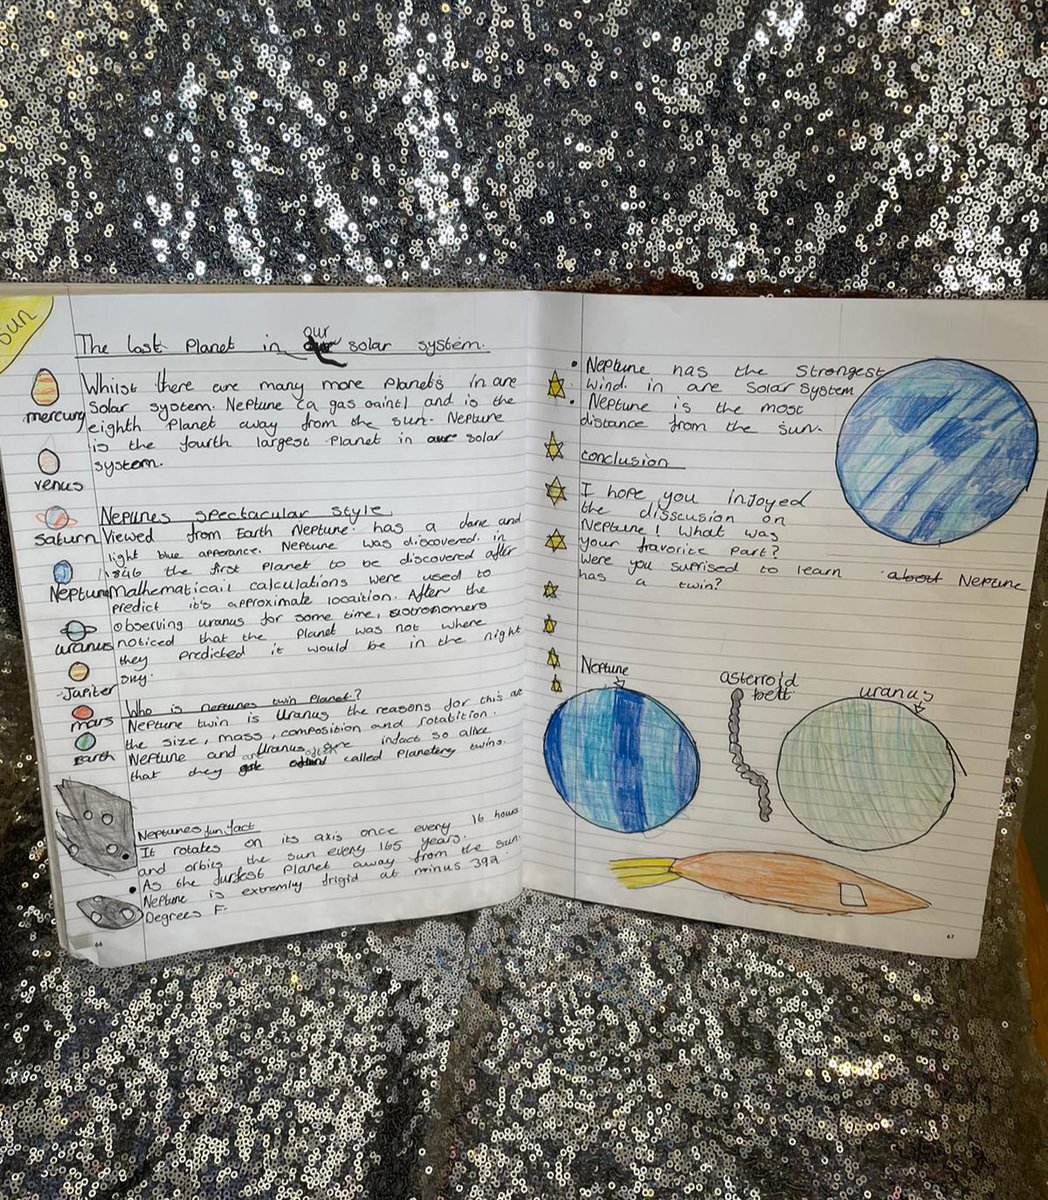 Sun
The last Planet in our solar system.
Whilst there are many more Planets in are
solar system. Neptune (a gas gaint) and is the
eighth Planet away from the sun. Neptune
is the fourth largest Planet in our solar
system.
Neptunes spectacular style
Viewed from Earth Neptune has a dark and
light blue apperance. Neptune was discovered in
1846 the first Planet to be discovered after
Mathematicail calculations were used to
predict it's approximate locaition. After the
observing uranus for some time, astronomers
noticed that the Planet was not where
they predicted it would be in the night
Who is neptunes twin Planet?
Neptune twin is Uranus the reasons for this are
the size, mass, composition and rotatition.
Neptune and Uranus are infact so alike
that they are often called Planetery twins.
Neptunes fun fact
It rotates on its axis once every 16 hours
and orbits the sun every 165 years.
• As the furtest Planet away from the sun.
Neptune is extremly frigid at minus 392
Degrees F.
mercury
venus
Saturn
Neptune
uranus
Jupiter
mars
Earth
66
• Neptune has the strongest
wind. in are Solar System
• Neptune is the most
distance from the sun.
conclusion
I hope you injoyed
the disscusion on
Neptune! What was
your favorite Part?
Were you suprised to learn about Neptune
has a twin?
Neptune
asterroid
belt
uranus
67